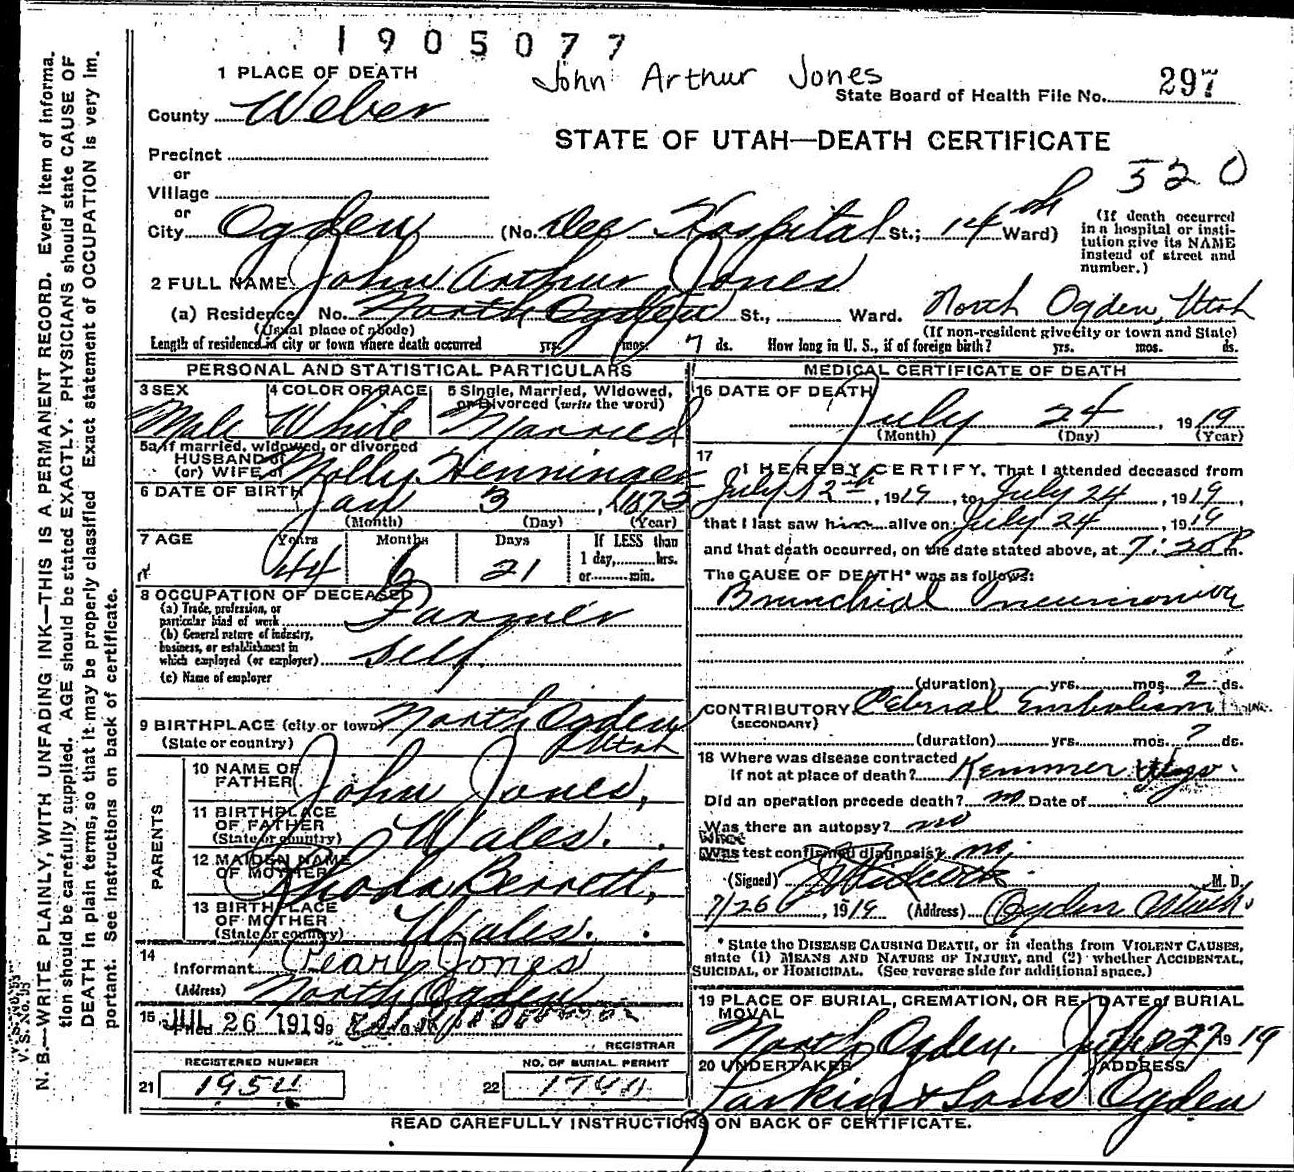 1905077
John Arthur Jones
1 PLACE OF DEATH
State Board of Health File No. 297
County Weber
STATE OF UTAH—DEATH CERTIFICATE
520
Precinct
or
Village
or
City Ogden (No. Dee Hospital St.; 14th Ward)
(If death occurred in a hospital or institution give its NAME instead of street and number.)
2 FULL NAME John Arthur Jones
(a) Residence No. North Ogden St., Ward. North Ogden, Utah
(Usual place of abode) (If non-resident give city or town and State)
Length of residence in city or town where death occurred yrs. mos. 7 ds. How long in U. S., if of foreign birth? yrs. mos. ds.
PERSONAL AND STATISTICAL PARTICULARS
3 SEX Male
4 COLOR OR RACE White
5 Single, Married, Widowed, or Divorced (write the word) Married
5a If married, widowed, or divorced
HUSBAND of
(or) WIFE of Molly Henninger
6 DATE OF BIRTH Jan 3, 1875
(Month) (Day) (Year)
7 AGE Years 44 Months 6 Days 21 If LESS than 1 day, hrs. or min.
8 OCCUPATION OF DECEASED
(a) Trade, profession, or particular kind of work Farmer
(b) General nature of industry, business, or establishment in which employed (or employer) Self
(c) Name of employer
9 BIRTHPLACE (city or town) North Ogden
(State or country) Utah
PARENTS
10 NAME OF FATHER John Jones,
11 BIRTHPLACE OF FATHER (State or country) Wales.
12 MAIDEN NAME OF MOTHER Rhoda Berrett,
13 BIRTHPLACE OF MOTHER (State or country) Wales.
14 Informant Pearl Jones
(Address) North Ogden
15 Filed JUL 26 1919
REGISTRAR
REGISTERED NUMBER
NO. OF BURIAL PERMIT
21 1954
22
MEDICAL CERTIFICATE OF DEATH
16 DATE OF DEATH July 24, 1919
(Month) (Day) (Year)
17
I HEREBY CERTIFY, That I attended deceased from
July 12th, 1919, to July 24, 1919,
that I last saw him alive on July 24, 1919
and that death occurred, on the date stated above, at 7:20 P m.
The CAUSE OF DEATH* was as follows:
Brunchial Pneumonia
(duration) yrs. mos. 2 ds.
CONTRIBUTORY Cebrial Embolism
(SECONDARY)
(duration) yrs. mos. ? ds.
18 Where was disease contracted
if not at place of death? Kemmer Wyo.
Did an operation precede death? no Date of
Was there an autopsy? no
What test confirmed diagnosis? no
(Signed) M. D.
7/26, 1919 (Address) Ogden Utah.
* State the DISEASE CAUSING DEATH, or in deaths from VIOLENT CAUSES, state (1) MEANS AND NATURE OF INJURY, and (2) whether ACCIDENTAL, SUICIDAL, or HOMICIDAL. (See reverse side for additional space.)
19 PLACE OF BURIAL, CREMATION, OR REMOVAL North Ogden.
DATE of BURIAL July 27 1919
20 UNDERTAKER Larkin & Sons
ADDRESS Ogden
READ CAREFULLY INSTRUCTIONS ON BACK OF CERTIFICATE.
N. B.—WRITE PLAINLY, WITH UNFADING INK—THIS IS A PERMANENT RECORD. Every item of information should be carefully supplied. AGE should be stated EXACTLY. PHYSICIANS should state CAUSE OF DEATH in plain terms, so that it may be properly classified. Exact statement of OCCUPATION is very important. See instructions on back of certificate.